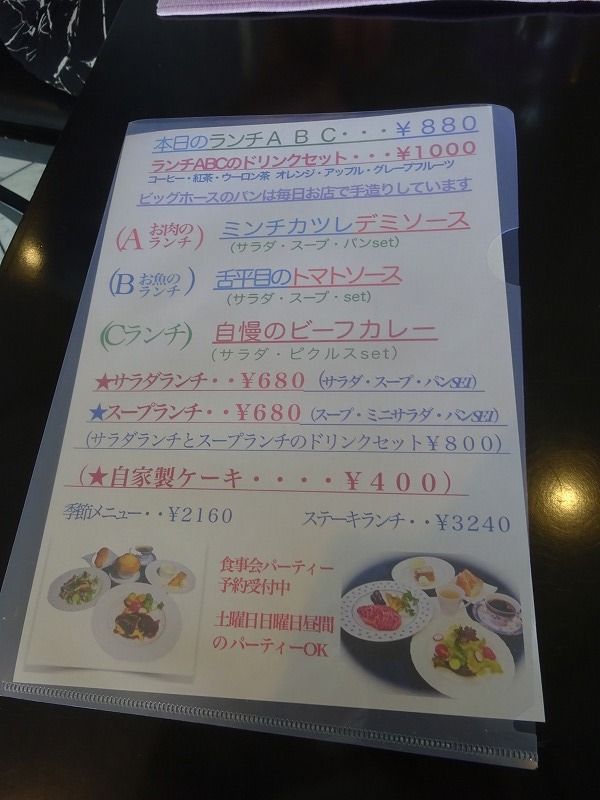 本日のランチＡ Ｂ Ｃ・・・￥８８０
ランチABCのドリンクセット・・・￥１０００
コーヒー・紅茶・ウーロン茶 オレンジ・アップル・グレープフルーツ
ビッグホースのパンは毎日お店で手造りしています
(A お肉のランチ) ミンチカツレデミソース
(サラダ・スープ・パンset)
(B お魚のランチ) 舌平目のトマトソース
(サラダ・スープ・set)
(Cランチ) 自慢のビーフカレー
(サラダ・ピクルスset)
★サラダランチ・・￥６８０ (サラダ・スープ・パンSET)
★スープランチ・・￥６８０ (スープ・ミニサラダ・パンSET)
(サラダランチとスープランチのドリンクセット￥８００)
(★自家製ケーキ・・・・￥４００)
季節メニュー・・￥2160 ステーキランチ・・￥3240
食事会パーティー
予約受付中
土曜日日曜日昼間
のパーティーOK